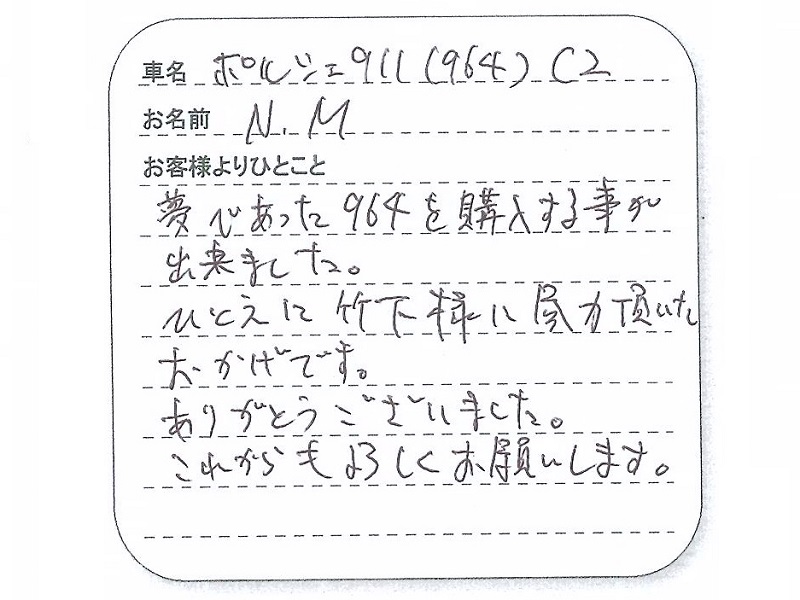 車名 ポルシェ911(964) C2
お名前 N.M
お客様よりひとこと
夢であった964を購入する事が
出来ました。
ひとえに竹下様に尽力頂いた
おかげです。
ありがとうございました。
これからもよろしくお願いします。